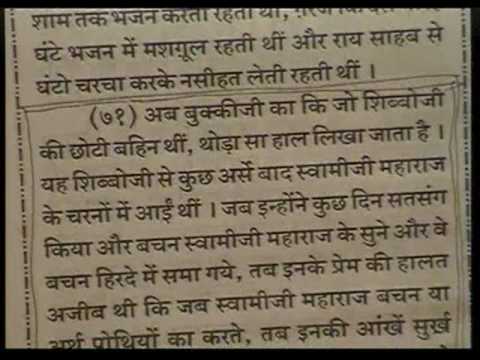 शाम तक भजन करती रहती थीं, ग़रज़ कि
घंटे भजन में मशग़ूल रहती थीं और राय साहब से
घंटो चरचा करके नसीहत लेती रहती थीं ।
(७१) अब बुक्कीजी का कि जो शिब्बोजी
की छोटी बहिन थीं, थोड़ा सा हाल लिखा जाता है ।
यह शिब्बोजी से कुछ अर्से बाद स्वामीजी महाराज
के चरनों में आईं थीं । जब इन्होंने कुछ दिन सतसंग
किया और बचन स्वामीजी महाराज के सुने और वे
बचन हिरदे में समा गये, तब इनके प्रेम की हालत
अजीब थी कि जब स्वामीजी महाराज बचन या
अर्थ पोथियों का करते, तब इनकी आंखें सुर्ख़